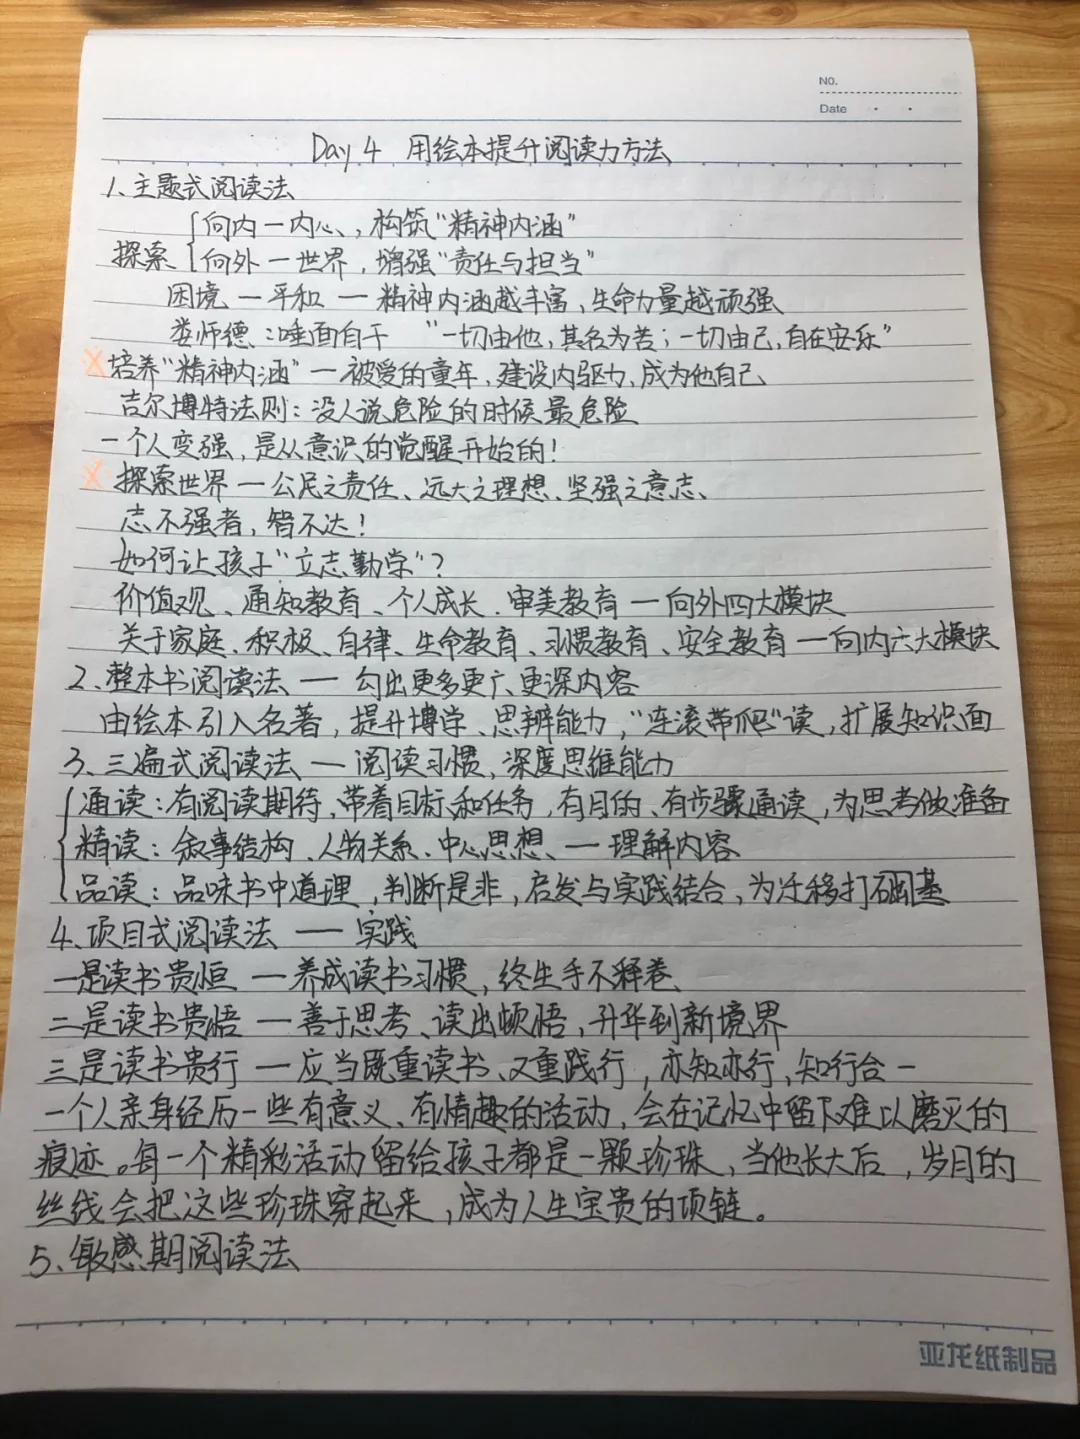 NO.
Date
Day 4 用绘本提升阅读力方法
1、主题式阅读法
向内一内心,构筑“精神内涵”
探索
向外一世界,增强“责任与担当”
困境 一 平和 一 精神内涵越丰富,生命力量越顽强
娄师德:唾面自干 “一切由他,其名为苦;一切由己,自在安乐”
培养“精神内涵” 一 被爱的童年,建设内驱力,成为他自己
吉尔博特法则:没人说危险的时候最危险
一个人变强,是从意识的觉醒开始的!
探索世界 一 公民之责任、远大之理想、坚强之意志、
志不强者,智不达!
如何让孩子“立志勤学”?
价值观、通知教育、个人成长、审美教育 一 向外四大模块
关于家庭、积极、自律、生命教育、习惯教育、安全教育 一 向内六大模块
2、整本书阅读法 一 勾出更多更广更深内容
由绘本引入名著,提升博学、思辨能力,“连滚带爬”读,扩展知识面
3、三遍式阅读法 一 阅读习惯,深度思维能力
通读:有阅读期待、带着目标和任务,有目的、有步骤通读,为思考做准备
精读:叙事结构、人物关系、中心思想、一 理解内容
品读:品味书中道理,判断是非,启发与实践结合,为迁移打础基
4、项目式阅读法 一 实践
一是读书贵恒 一 养成读书习惯,终生手不释卷
二是读书贵悟 一 善于思考、读出顿悟,升华到新境界
三是读书贵行 一 应当既重读书、又重践行,亦知亦行、知行合一
一个人亲身经历一些有意义、有情趣的活动,会在记忆中留下难以磨灭的
痕迹。每一个精彩活动留给孩子都是一颗珍珠,当他长大后,岁月的
丝线会把这些珍珠穿起来,成为人生宝贵的项链。
5、敏感期阅读法
亚龙纸制品